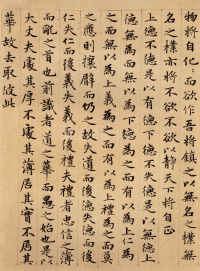 物將自化而欲作吾將鎮之以無名之樸無
名之樸亦將不欲不欲以靜天下將自正
上德不德是以有德下德不失德是以無德上
德無為而無以為下德為之而有以為上仁為
之而無以為上義為之而有以為上禮為之而莫
之應則攘臂而仍之故失道而後德失德而後
仁失仁而後義失義而後禮夫禮者忠信之薄
而亂之首也前識者道之華而愚之始也是以
大丈夫處其厚不處其薄居其實不居其
華故去取彼此